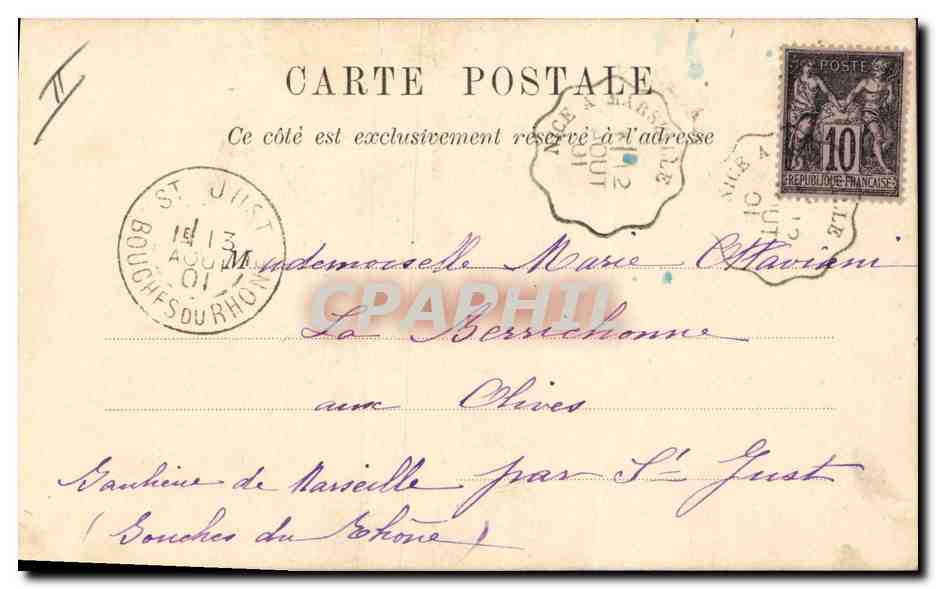 II
CARTE POSTALE
Ce côté est exclusivement réservé à l'adresse
POSTE
10
REPUBLIQUE FRANÇAISE
NICE A MARSEILLE
12
AOUT
01
NICE A
12
OUT
01
LLE
ST JUST
1E 13
AOUT
01
BOUCHES DU RHONE
Mademoiselle Marie Ottaviani
CPAPHIL
La Berrichonne
aux Olives
Banlieue de Marseille par St Just
(Bouches du Rhône)